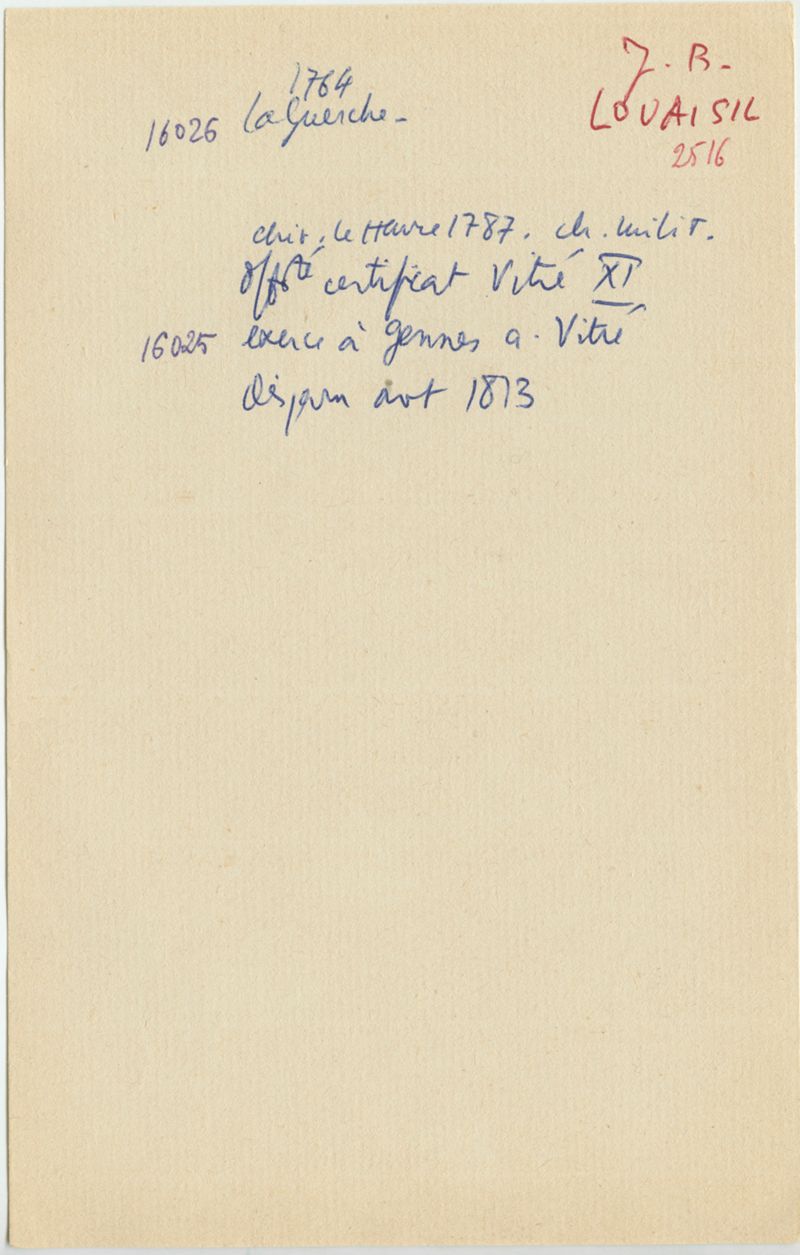 J. B.
LOUAISIL
2516
1764
16026 La Guerche.
chir. Le Havre 1787. ch. milit.
certificat Vitré XI
16025 exerce à Gennes a. Vitré
Disparu avt 1813